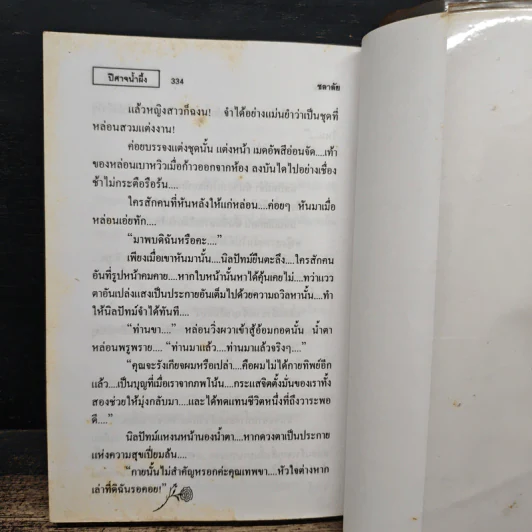 ปีศาจน้ำผึ้ง 334 ชลาลัย
แล้วหญิงสาวก็ฉงน! จำได้อย่างแม่นยำว่าเป็นชุดที่
หล่อนสวมแต่งงาน!
ค่อยบรรจงแต่งชุดนั้น แต่งหน้า เมคอัพสีอ่อนจัด....เท้า
ของหล่อนเบาหวิวเมื่อก้าวออกจากห้อง ลงบันไดไปอย่างเชื่อง
ช้าไม่กระตือรือร้น....
ใครสักคนที่หันหลังให้แก่หล่อน....ค่อยๆ หันมาเมื่อ
หล่อนเอ่ยทัก....
“มาพบดิฉันหรือคะ....”
เพียงเมื่อเขาหันมานั้น....นิลปัทม์ยืนตะลึง....ใครสักคน
อันที่รูปหน้าคมคาย....หากใบหน้านั้นหาได้คุ้นเคยไม่....ทว่าแวว
ตาอันเปล่งแสงเป็นประกายอันเต็มไปด้วยความถวิลหานั้น....ทำ
ให้นิลปัทม์จำได้ทันที....
“ท่านขา....” หล่อนวิ่งผวาเข้าสู่อ้อมกอดนั้น น้ำตา
หล่อนพรูพราย.... “ท่านมาแล้ว....ท่านมาแล้วจริงๆ....”
“คุณจะรังเกียจผมหรือเปล่า....คือผมไม่ได้กายทิพย์อีก
แล้ว....เป็นบุญที่เมื่อเราจากภพไปนั้น....กระแสจิตตั้งมั่นของเราทั้ง
สองช่วยให้มุ่งกลับมา....และได้ทดแทนชีวิตหนึ่งที่ถึงวาระพอ
ดี....”
นิลปัทม์แหงนหน้านองน้ำตา....หากดวงตาเป็นประกาย
แห่งความสุขเปี่ยมล้น....
“กายนั้นไม่สำคัญหรอกค่ะคุณเทพขา....หัวใจต่างหาก
เล่าที่ดิฉันรอคอย!”